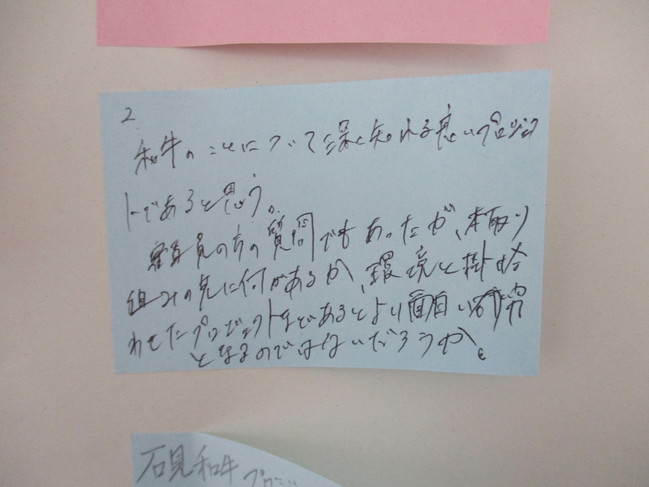 2
和牛のことについて深く知れる良いプロジェク
トであると思う。
審査員の方の質問でもあったが、本取り
組みの先に何があるか、環境と掛け合
わせたプロジェクトなどであるとより面白い研究
となるのではないだろうか。
石見和牛プロジ